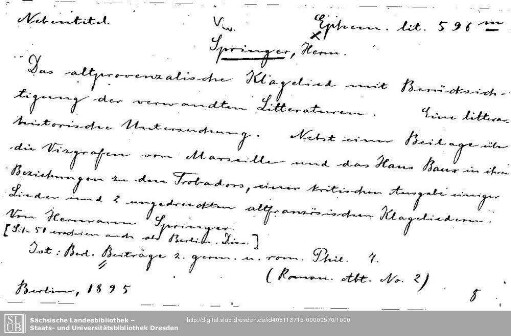 Nebentitel. Vw. Ephem. lit. 596 m
Springer, Herm.
Das altprovenzalische Klagelied mit Berücksich-
tigung der verwandten Litteraturen. Eine littera-
rhistorische Untersuchung. Nebst einer Beilage über
die Vizgrafen von Marseille und das Haus Baux in ihren
Beziehungen zu den Trobadors, einer kritischen Ausgabe einiger
Lieder und 2 ungedruckten altfranzösischen Klageliedern.
Von Hermann Springer.
[S. 1-51 erschien auch als Berlin. Diss.]
Ist: Berl. Beiträge z. germ. u. rom. Phil. 7.
(Roman. Abt. No. 2)
Berlin, 1895
8
Sächsische Landesbibliothek –
Staats- und Universitätsbibliothek Dresden